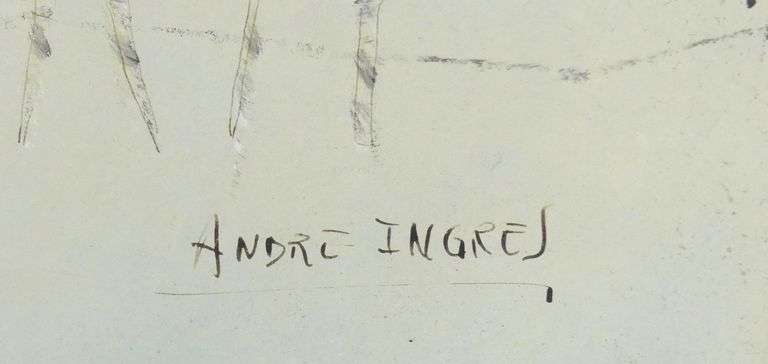 ANDRE INGRES